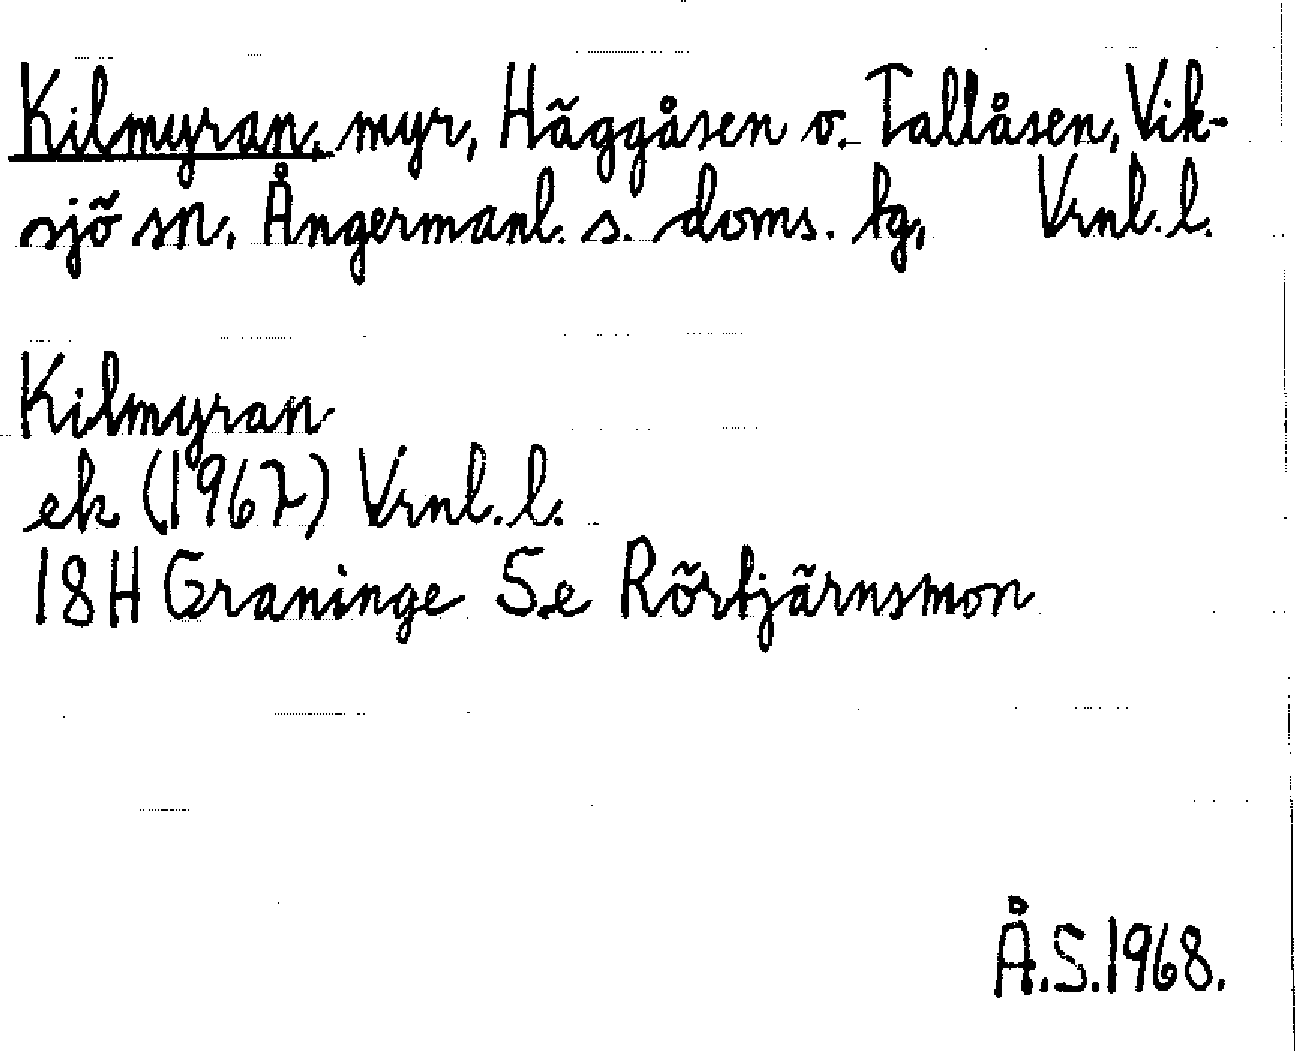 Kilmyran, myr, Häggåsen o. Tallåsen, Vik-
sjö sn. Ångermanl. s. doms. lg, Vrnl. l.
Kilmyran
ek (1967) Vrnl. l.
18H Graninge S.e Rörtjärnsmon
Å.S.1968.